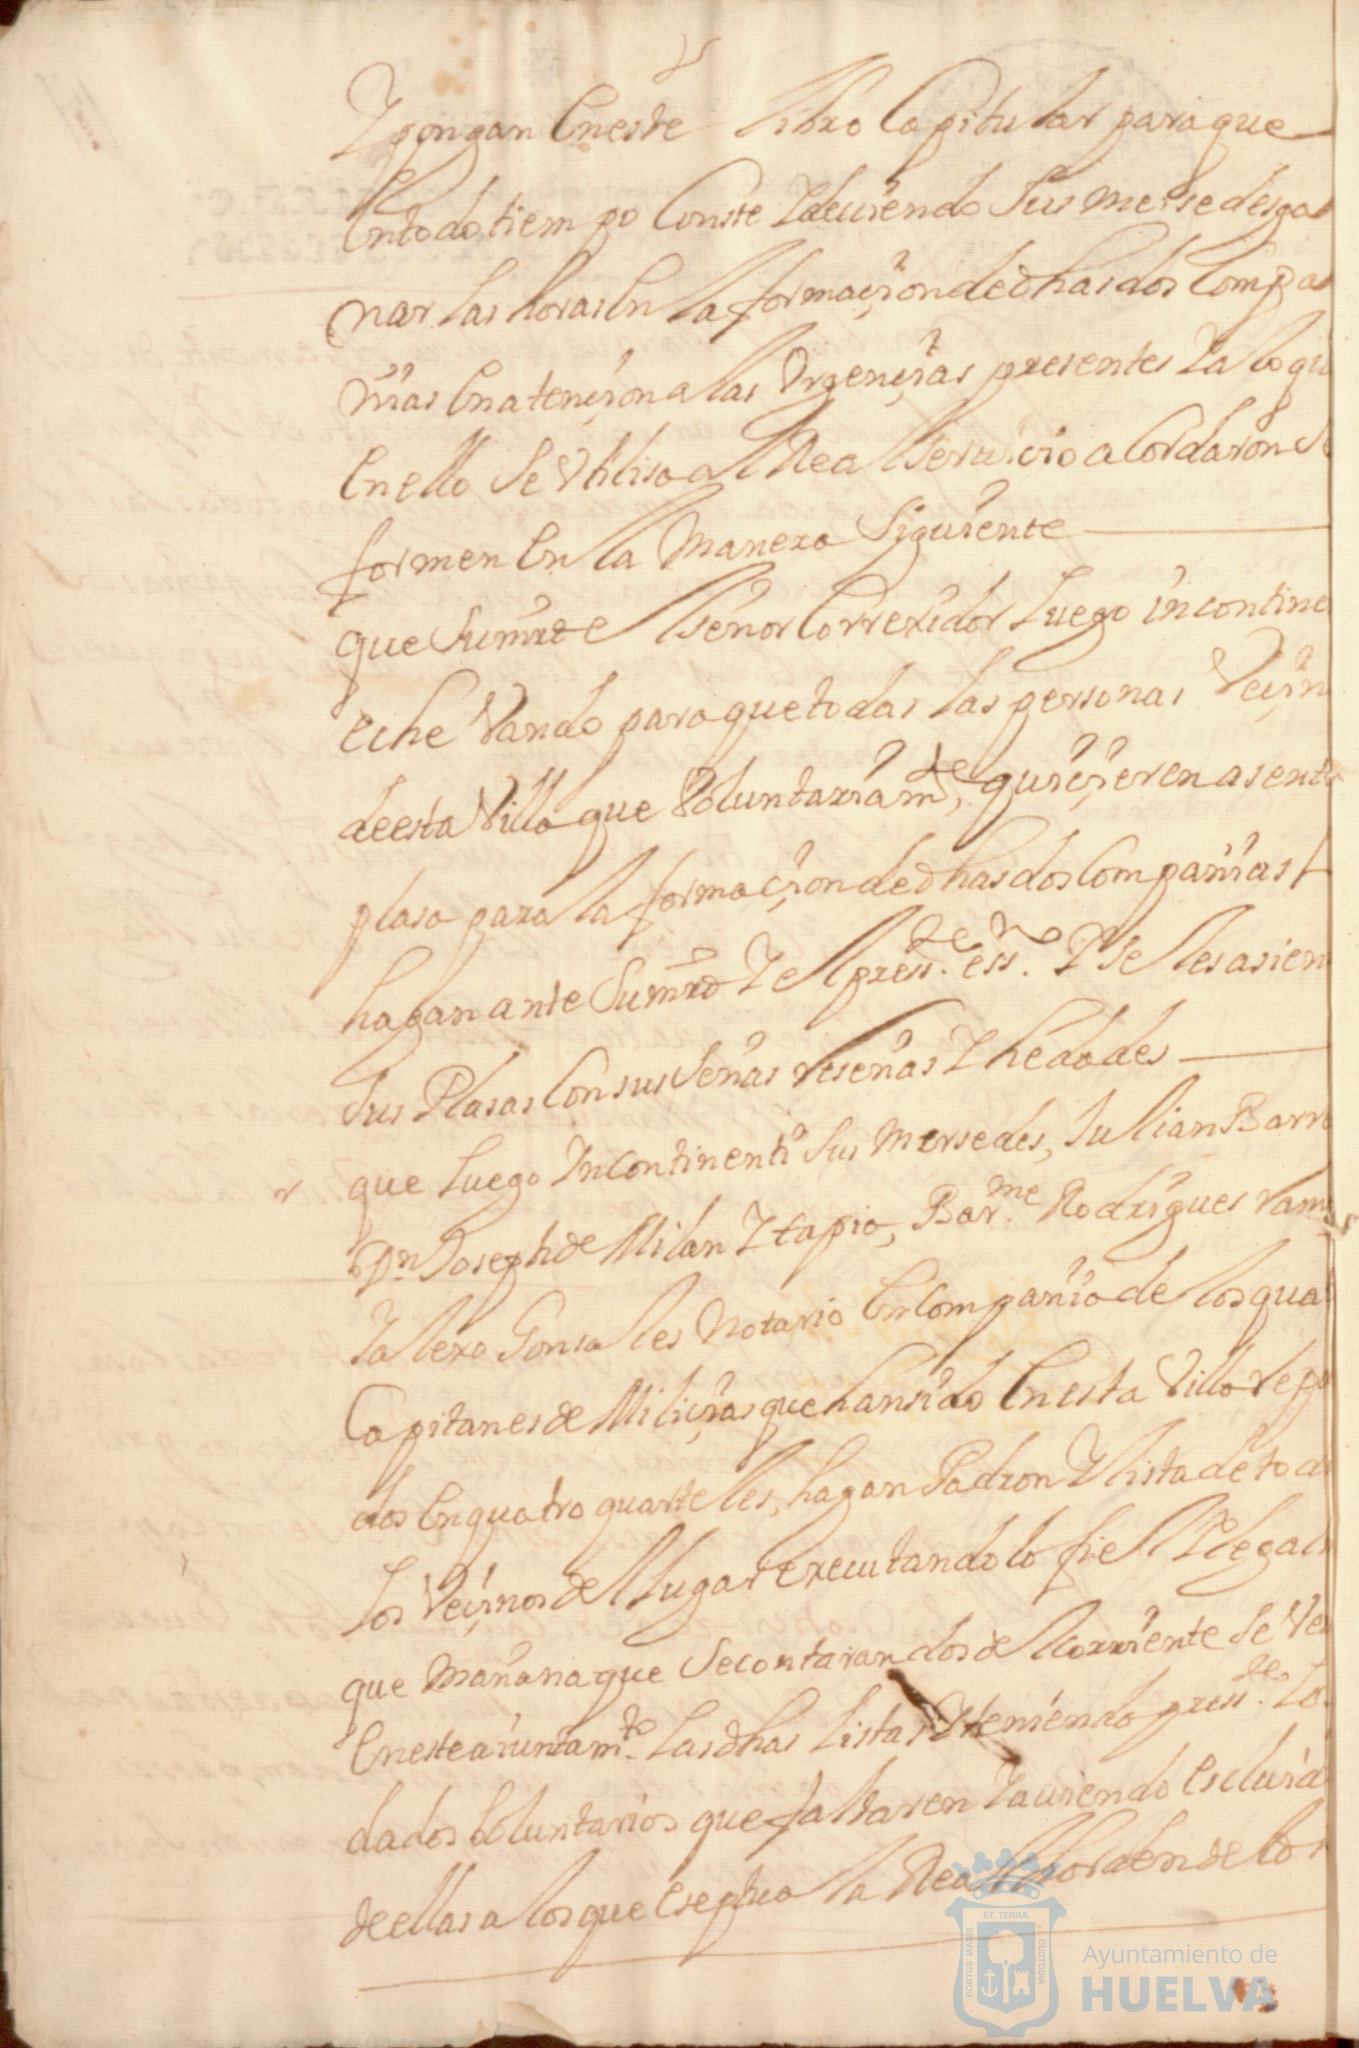 Y pongan En este libro Capitular para que
En todo tiempo Conste Y deviendo Sus mersedes ga
nar las horas En la formaçion de dhas dos Compa
ñias En atençion a las Vrgençias presentes Y a lo qu
En ello Se Vtilisa al Real Serviçio acordaron Se
formen En la Manera Siguiente
que Sumrd el señor Correxidor Luego incontine
eche Vando para que todas las personas Veçin
de esta Villa que Voluntariamte quiçieren asenta
plasa para la formaçion de dhas dos Compañias l
hagan ante Sumrd Y el presste essno Y Se les asien
Sus Plasas Con sus Señas reseñas Y hedades
que Luego Incontinenti Sus Mersedes, Julian Barro
Dn Joseph de Milan Y tapia, Barme Rodrigues Vam
Y alexo Gonsales Notario En Compañia de los qua
Capitanes de Miliçias que han sido En esta Villa Repa
dos En quatro quarteles, hagan Padron Y lista de toda
Los Veçinos del lugar executandolo fiel Y legal
que Mañana que Se contaran dos del corriente Se Ve
En este aiuntamto Las dhas listas Y teniendo presste Lo
dados Voluntarios que faltaren Y aviendo Escluid
de ellas a los que Eseptua la Real horden de los
Ayuntamiento de
HUELVA
PORTUS MARIS
ET TERRÆ
CUSTODIA